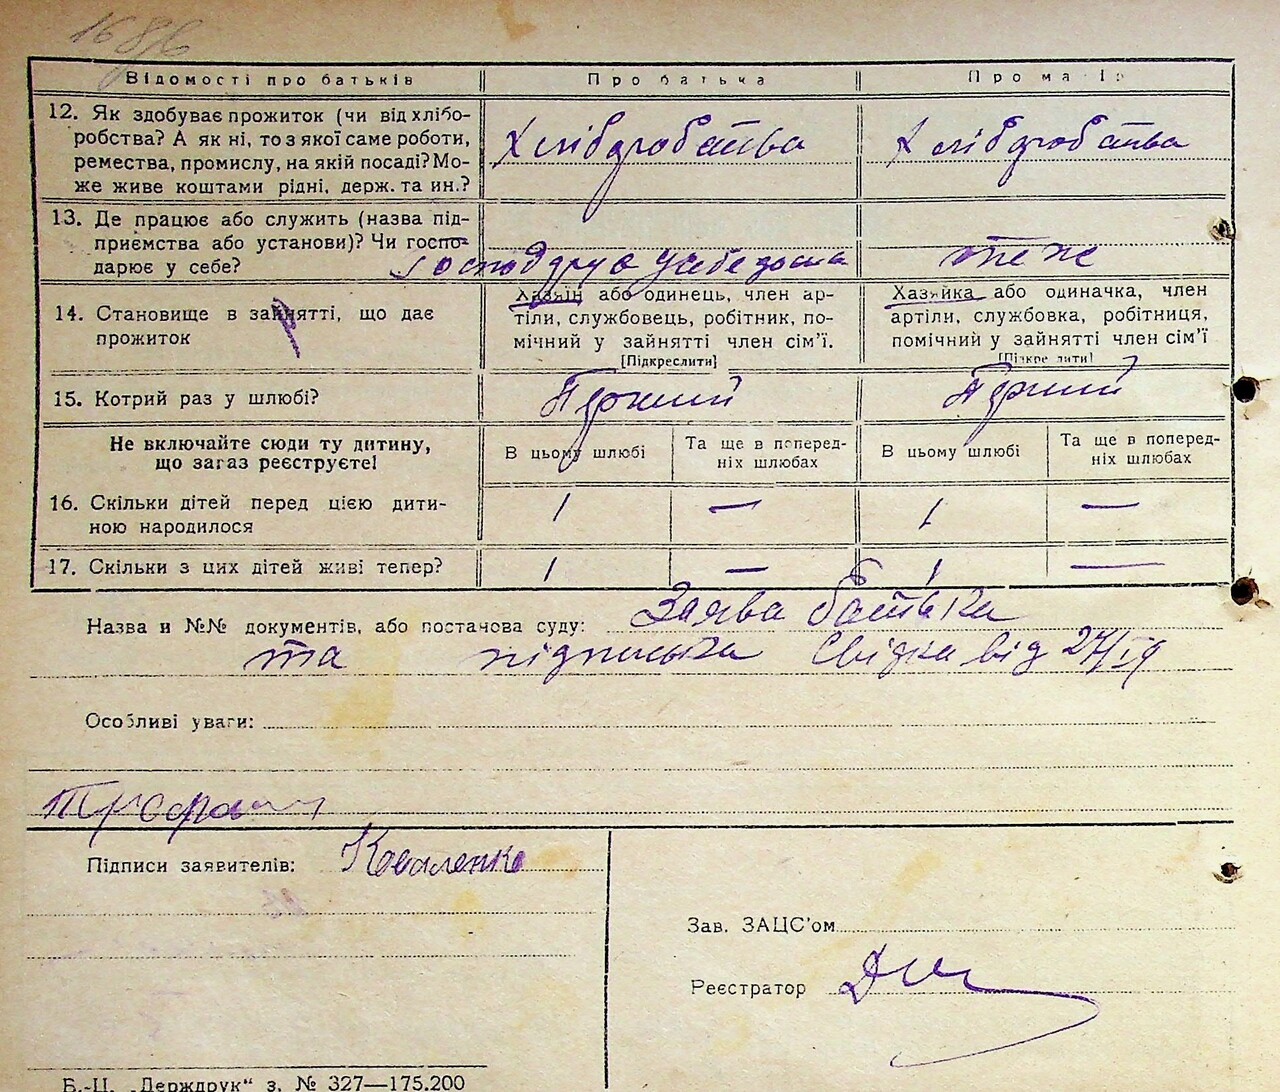 1686
Відомості про батьків
Про батька
Про матір
12. Як здобуває прожиток (чи від хлібо-
робства? А як ні, то з якої саме роботи,
ремества, промислу, на якій посаді? Мо-
же живе коштами рідні, держ. та ин.?
Хліборобства
Хліборобства
13. Де працює або служить (назва під-
приємства або установи)? Чи госпо-
дарює у себе?
Господарює у себе дома
теже
14. Становище в зайнятті, що дає
прожиток
Хазяїн або одинець, член ар-
тіли, службовець, робітник, по-
мічний у зайнятті член сім'ї.
[Підкреслити]
Хазяйка або одиначка, член
артіли, службовка, робітниця,
помічний у зайнятті член сім'ї
[Підкреслити]
15. Котрий раз у шлюбі?
Перший
Перший
Не включайте сюди ту дитину,
що зараз реєструєте!
В цьому шлюбі
Та ще в поперед-
ніх шлюбах
В цьому шлюбі
Та ще в поперед-
ніх шлюбах
16. Скільки дітей перед цією дити-
ною народилося
1 — 1 —
17. Скільки з цих дітей живі тепер?
1 — 1 —
Назва и №№ документів, або постанова суду: Заява батька
та підписька свідка від 27/IX
Особливі уваги:
Підписи заявителів: Коваленко
Зав. ЗАЦС'ом
Реєстратор
Б.-Ц. „Держдрук“ з. № 327—175.200